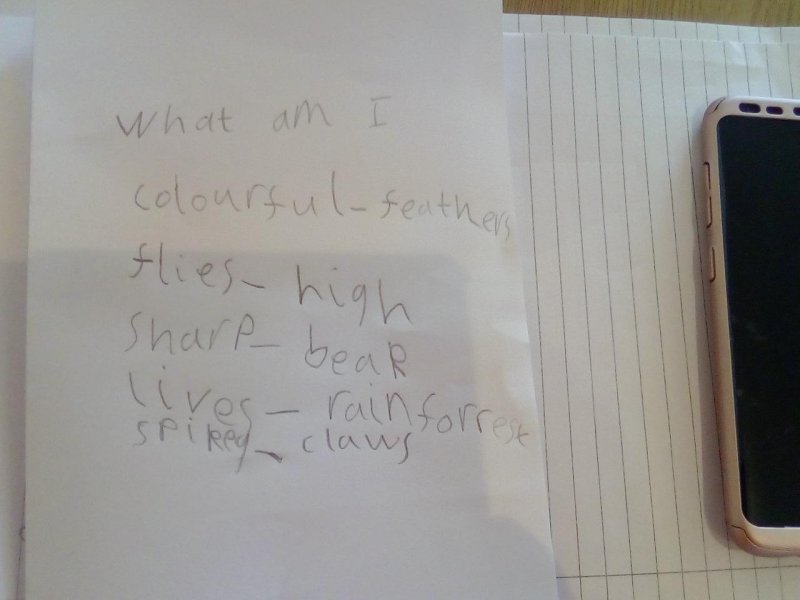 What am I
colourful-feathers
flies- high
sharp- beak
lives- rainforrest
spikey- claws